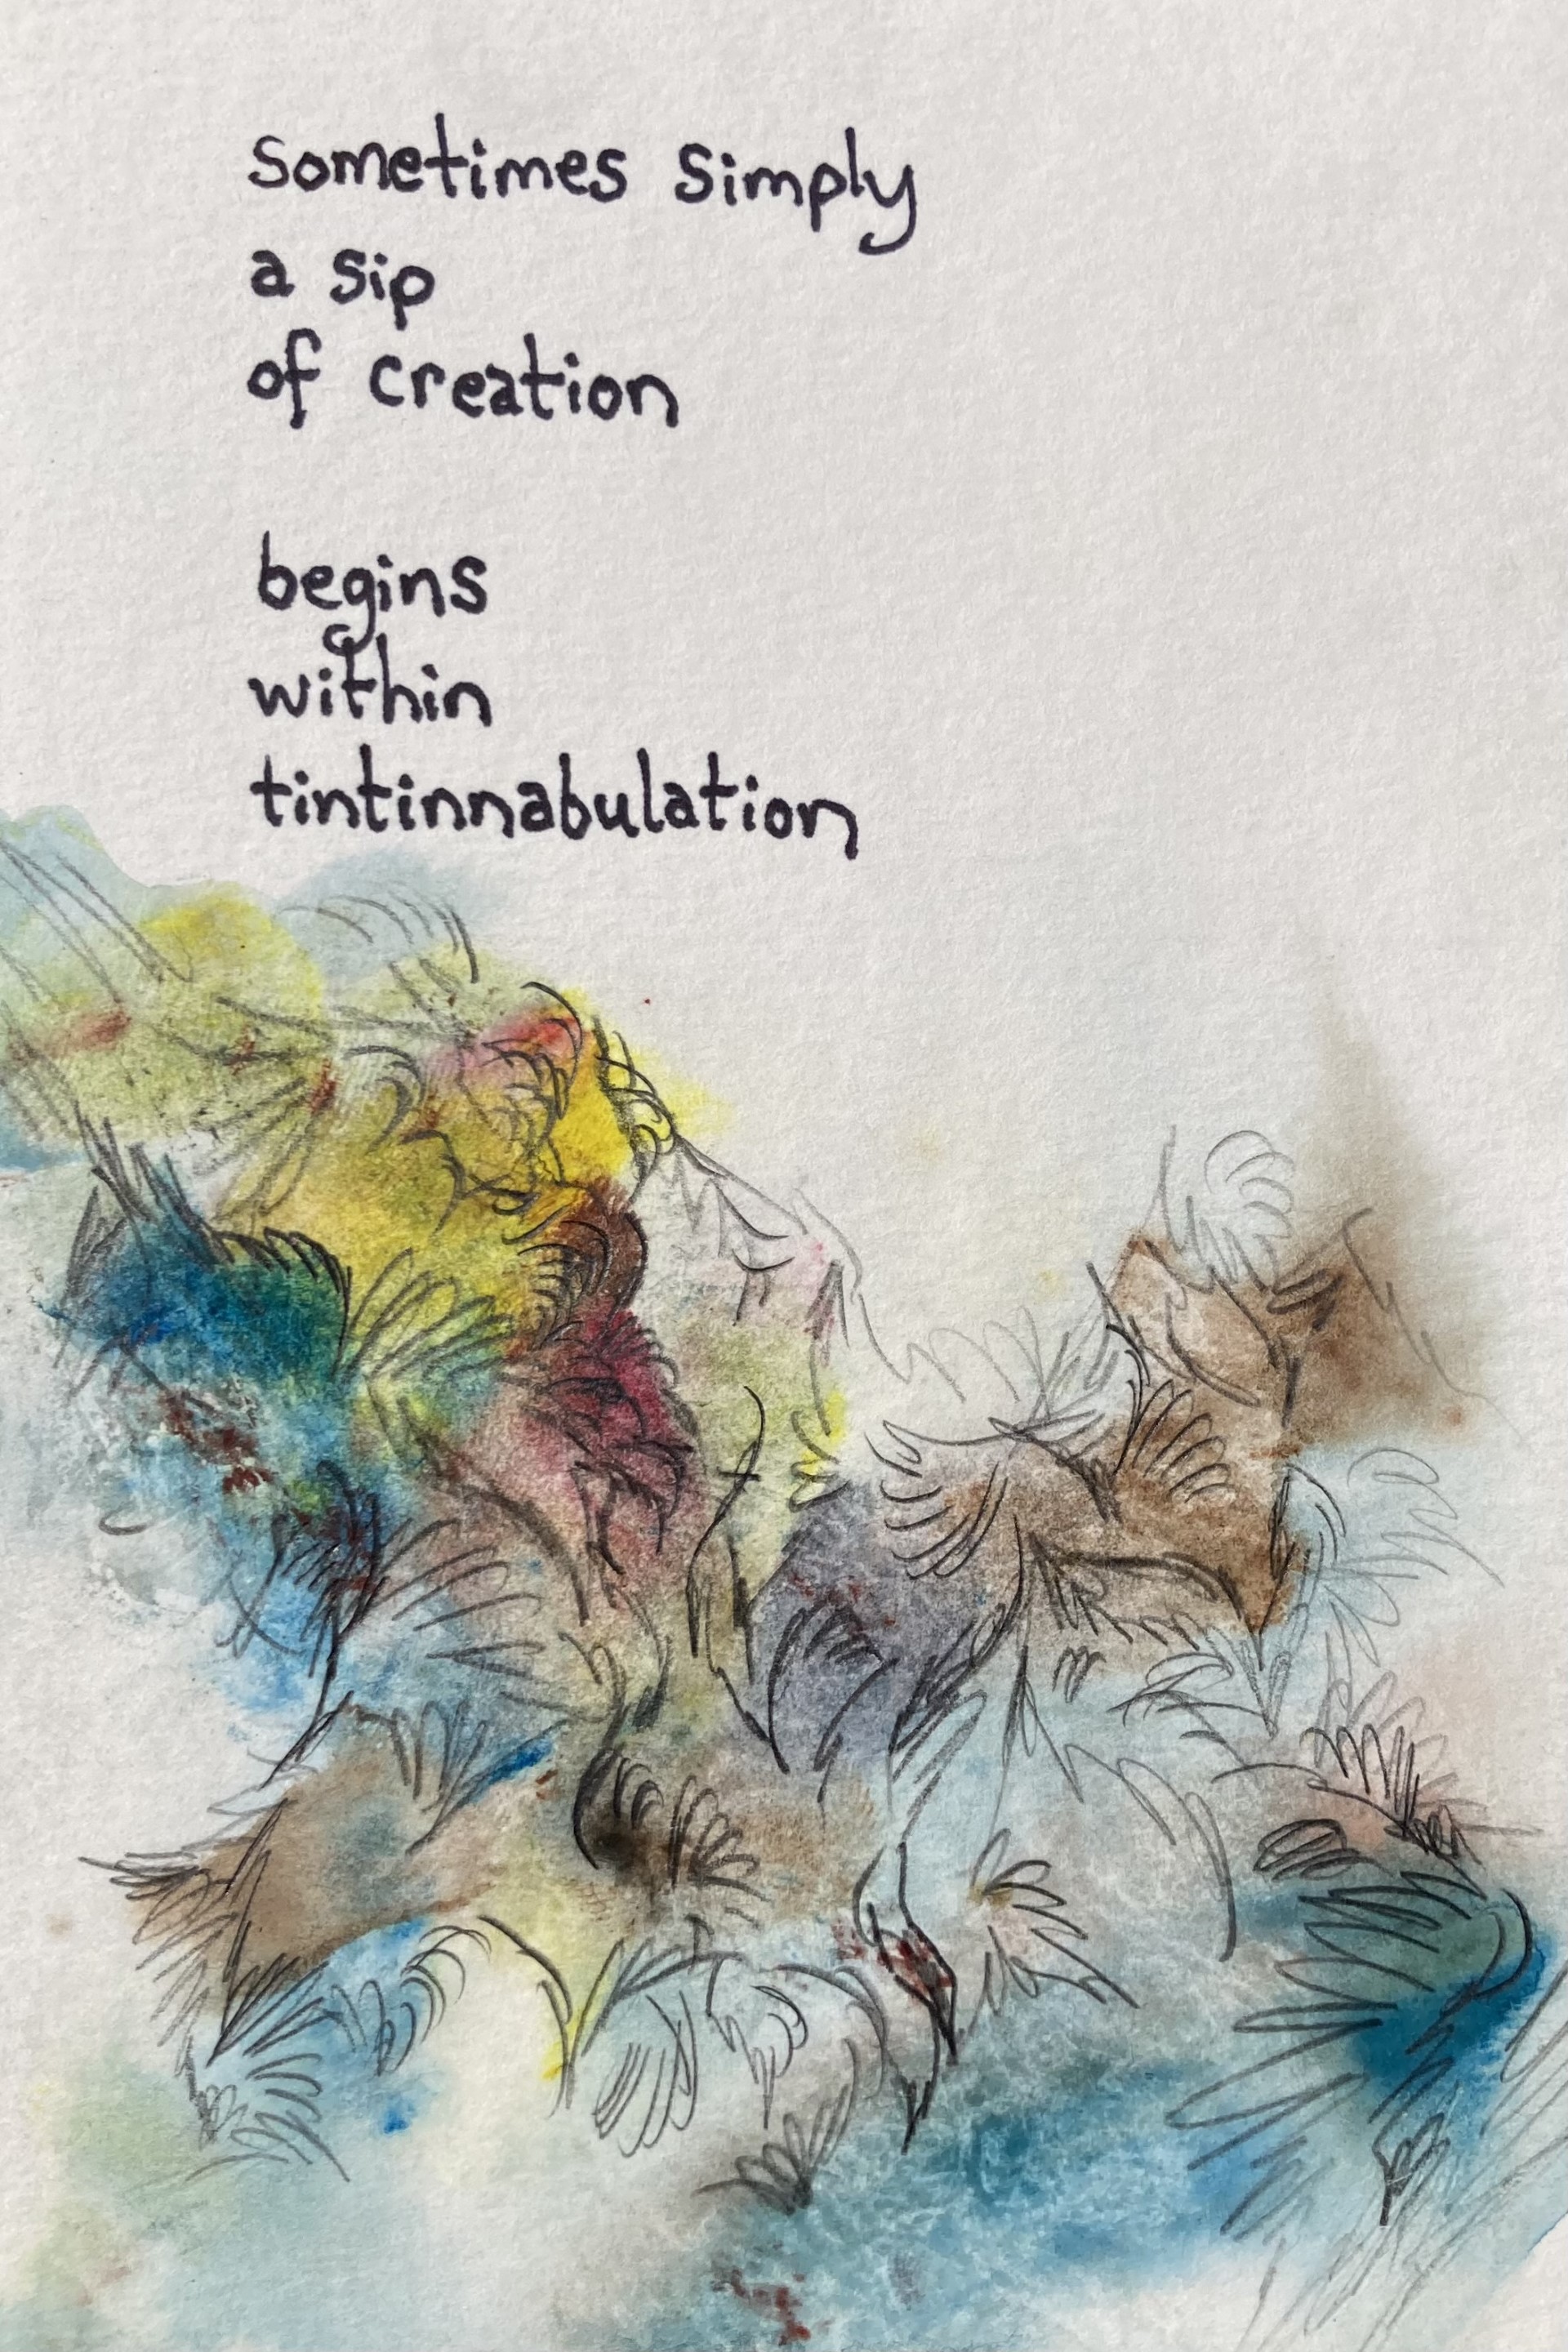 sometimes simply
a sip
of creation
begins
within
tintinnabulation